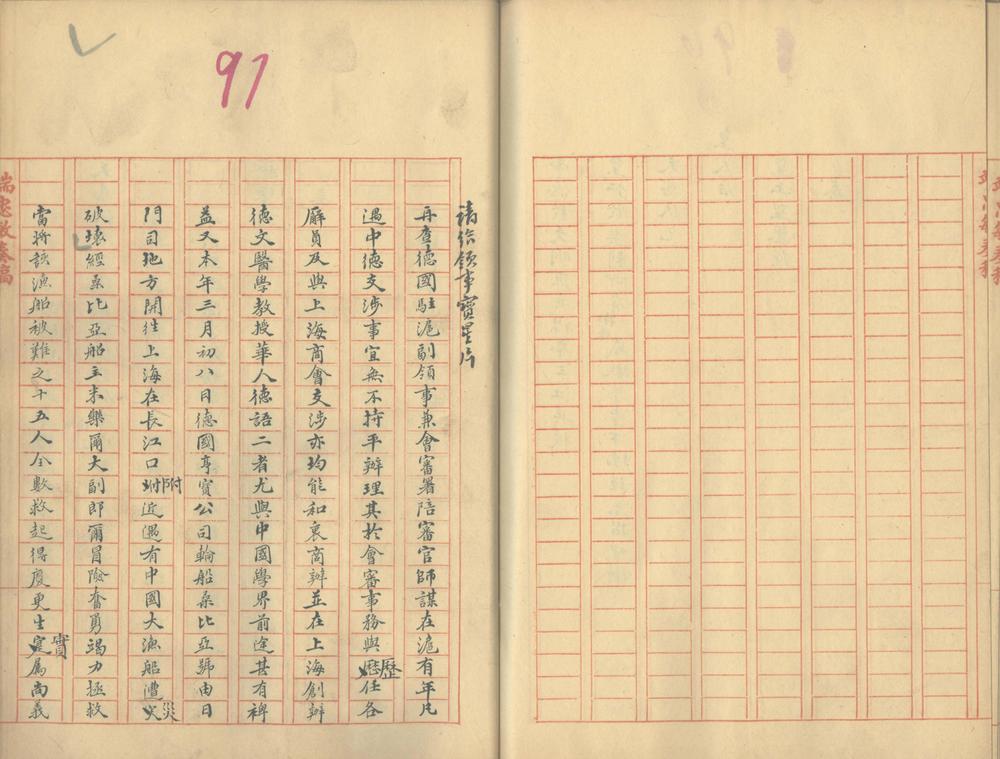 97
請給領事寶星片
再查德國駐滬副領事兼會審署陪審官師謀在滬有年凡
遇中德交涉事宜無不持平辦理其於會審事務與歷任各
廨員及與上海商會交涉亦均能和衷商辦並在上海創辦
德文醫學教授華人德語二者尤與中國學界前途甚有裨
益又本年三月初八日德國亨寶公司輪船桑比亞號由日
門司地方開往上海在長江口附近遇有中國大漁船遭災
破壞經桑比亞船主米樂爾大副郎爾冒險奮勇竭力拯救
當將該漁船被難之十五人全數救起得慶更生實屬尚義
端忠敏奏稿